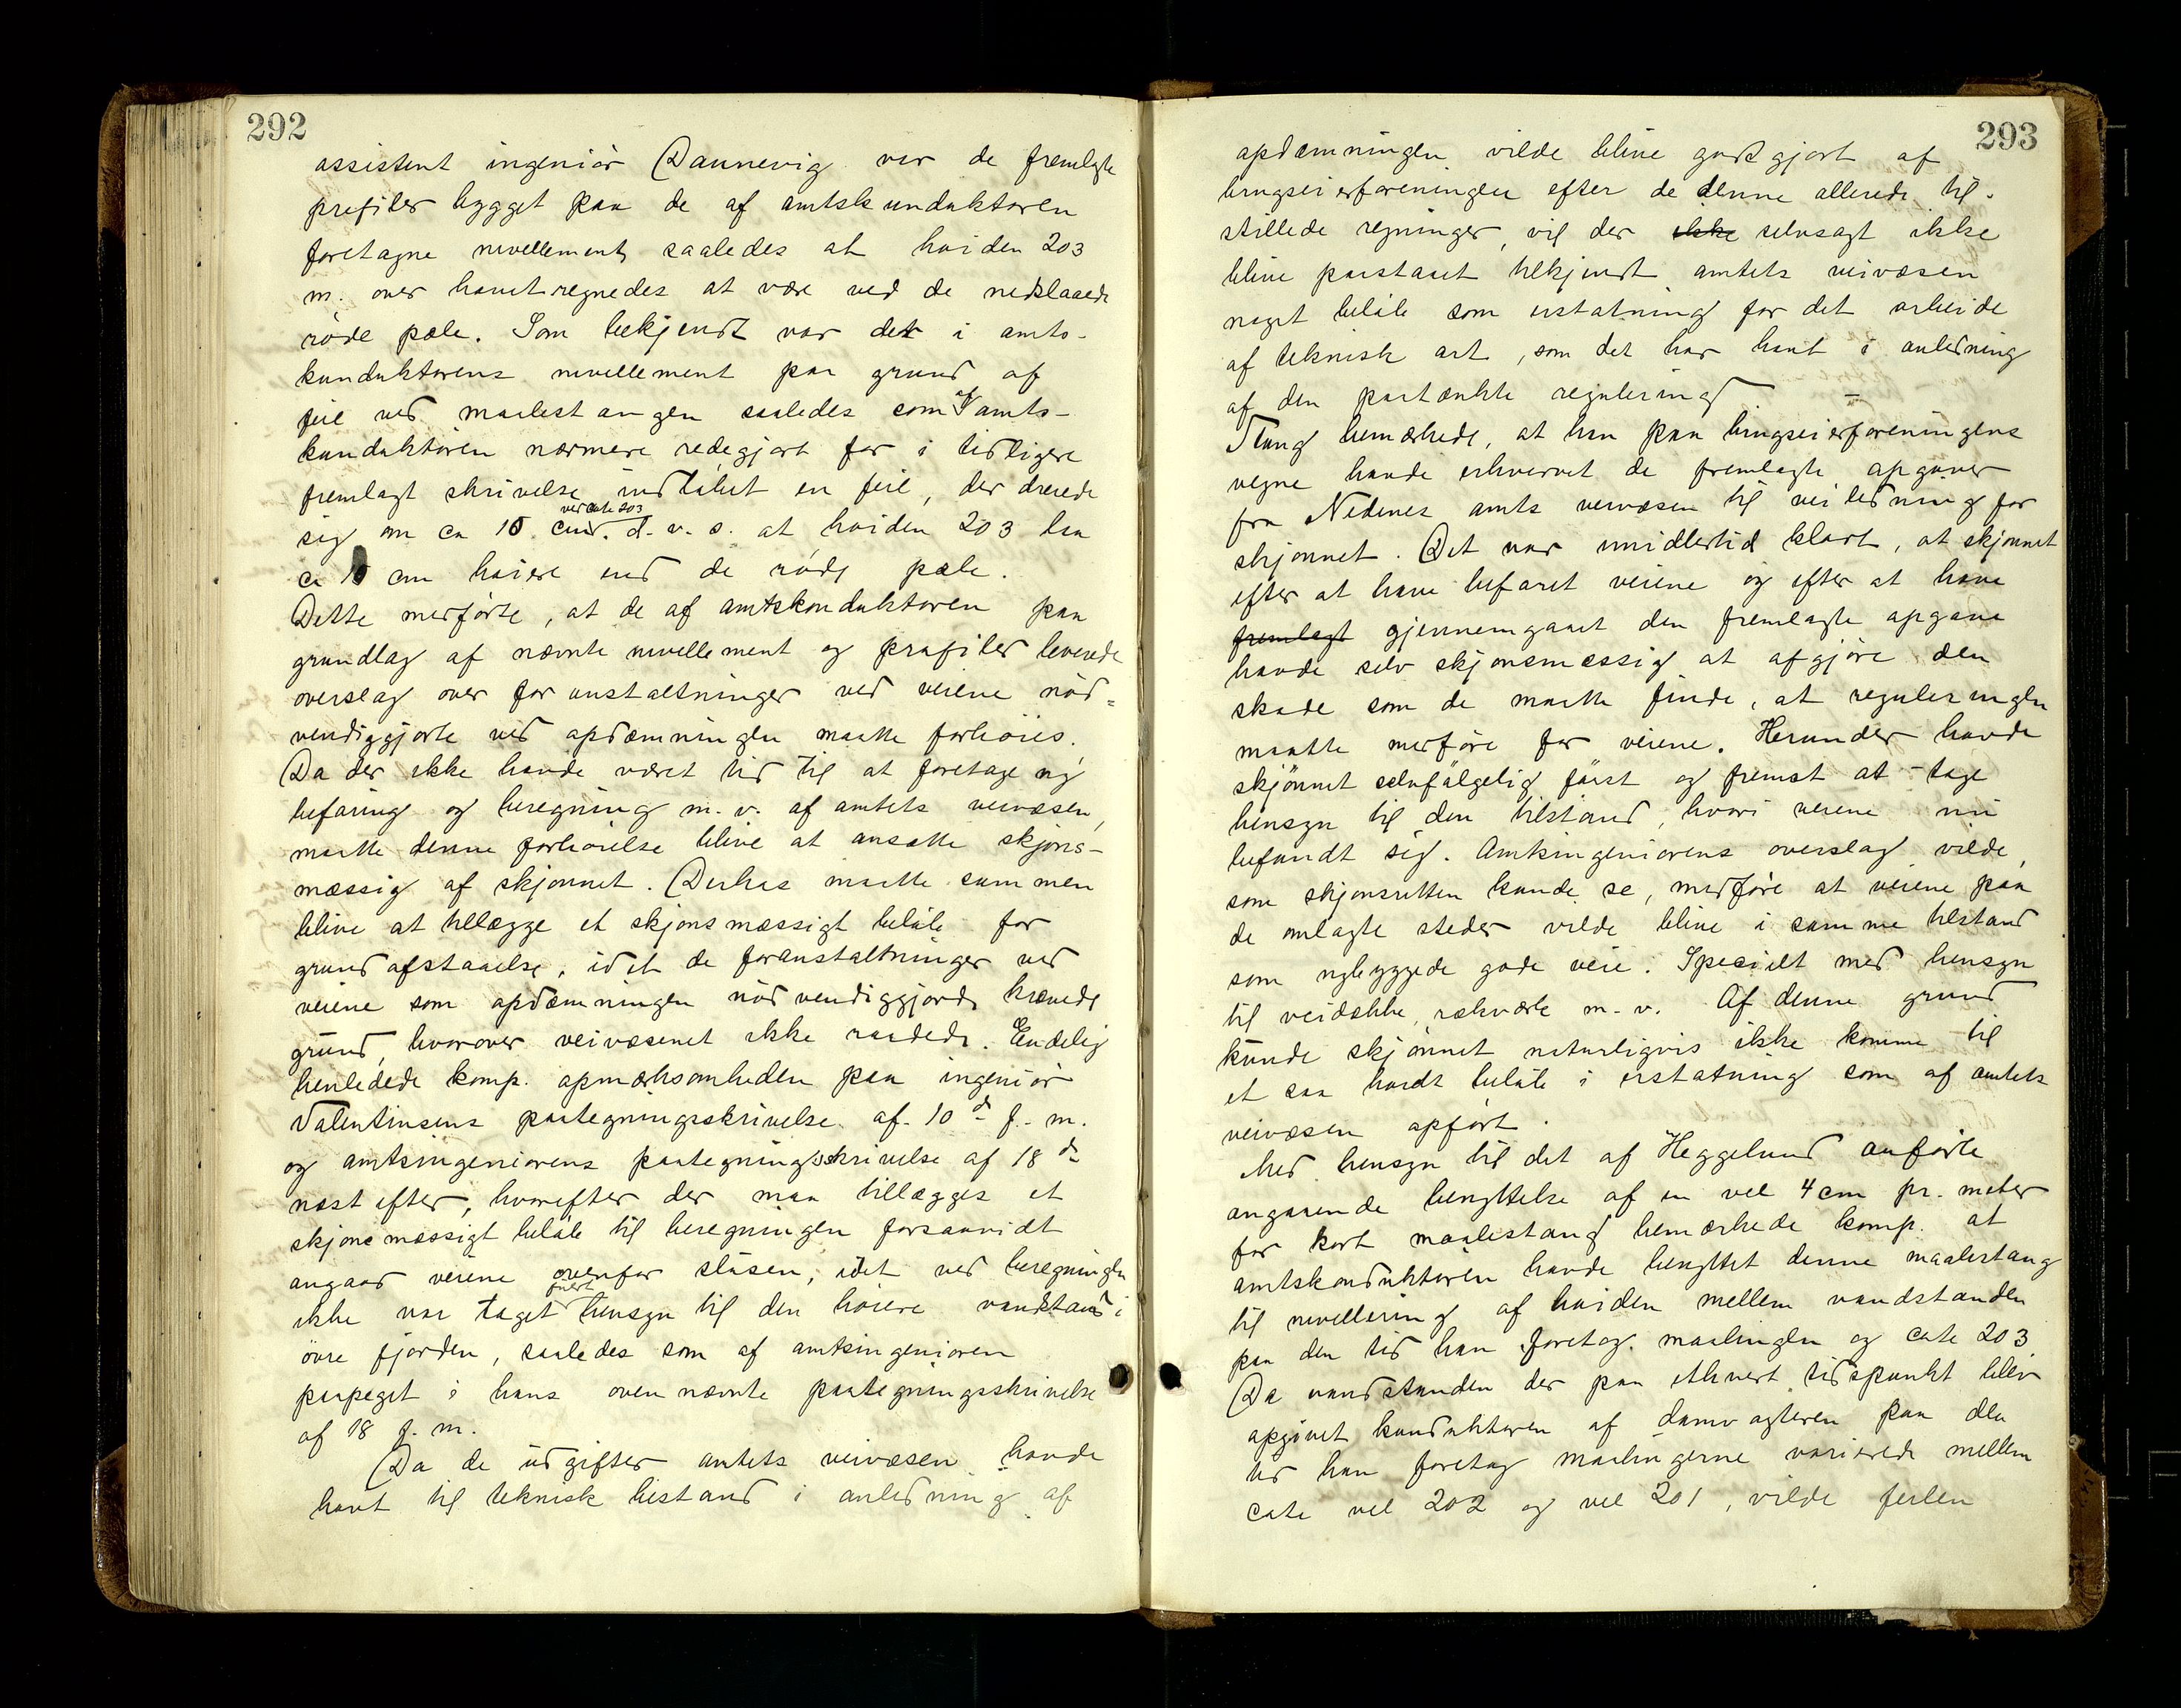 292
assistent ingeniör Dannevig var de fremlagte
profiler bygget paa de af amtskunduktøren
foretagne nivellement, saaledes at høiden 203
m. over havet regnedes at være ved de nedslaaede
røde pæle. Som bekjendt var det i amts-
kunduktørens nivellement paa grund af
feil ved maalestangen saaledes som af amts-
kunduktøren nærmere redegjort for i tidligere
fremlagt skrivelse indløbet en feil, der dreiede
sig om ca 10 cm ved cote 203. d. v. s. at høiden 203 laa
ca 10 cm høiere end de røde pæle.
Dette medførte, at de af amtskonduktøren paa
grundlag af nævnte nivellement og profiler leverede
overslag over foranstaltninger ved veiene nød=
vendiggjorte ved opdæmningen maatte forhøies.
Da der ikke havde været tid til at foretage ny
befaring og beregning m. v. af amtets veivæsen,
maatte denne forhøielse blive at ansætte skjøns-
mæssig af skjønnet. Desuden maatte sammen
blive at tillægge et skjønsmæssigt beløb for
grundafstaaelse, idet de foranstaltninger ved
veiene som opdæmningen nødvendiggjorde krævede
grund, hvorover veivæsenet ikke raadede. Endelig
henledede komp. opmærksomheden paa ingeniør
Valentinsens paategningsskrivelse af 10de f. m.
og amtsingeniørens paategningsskrivelse af 18de
næst efter, hvorefter der maa tillægges et
skjønsmæssigt beløb til beregningen forsaavidt
angaar veiene ovenfor slusen, idet ved beregningen
ikke var taget fuldt hensyn til den høiere vandstand i
øvre fjorden, saaledes som af amtsingeniøren
paapeget i hans ovennævnte paategningsskrivelse
af 18 f. m.
Da de udgifter amtets veivæsen havde
havt til teknisk bistand i anledning af
293
opdæmningen vilde blive godtgjort af
brugseierforeningen efter de denne allerede til-
stillede regninger, vil der ikke selvsagt ikke
blive paastaaet tilkjendt amtets veivæsen
noget beløb som erstatning for det arbeide
af teknisk art, som det har havt i anledning
af den paatænkte regulering. –
Stang bemærkede, at han paa brugseierforeningens
vegne havde erhvervet de fremlagte opgaver
fra Nedenes amts veivæsen til veiledning for
skjønnet. Det var imidlertid klart, at skjønnet
efter at have befaret veiene og efter at have
fremlagt gjennemgaaet den fremlagte opgave
havde selv skjønsmæssig at afgjøre den
skade som de maatte finde, at reguleringen
maatte medføre for veiene. Herunder havde
skjønnet selvfølgelig først og fremst at tage
hensyn til den tilstand, hvori veiene nu
befandt sig. Amtsingeniørens overslag vilde,
som skjønsretten kunde se, medføre at veiene paa
de omlagte steder vilde blive i samme tilstand
som nybyggede gode veie. Specielt med hensyn
til veidække, rækværk m. v. Af denne grund
kunde skjønnet naturligvis ikke komme til
et saa høidt beløb i erstatning som af amtets
veivæsen opført.
Med hensyn til det af Heggelund anførte
angaaende benyttelse af en vel 4 cm pr. meter
for kort maalestang bemærkede komp. at
amtskonduktøren havde benyttet denne maalestang
til nivellering af høiden mellem vandstanden
paa den tid han foretog maalingen og cote 203.
Da vandstanden der paa ethvert tidspunkt blev
opgivet konduktøren af damvogteren paa den
tid han foretog maalingerne varierede mellem
cote vel 202 og vel 201, vilde feilen